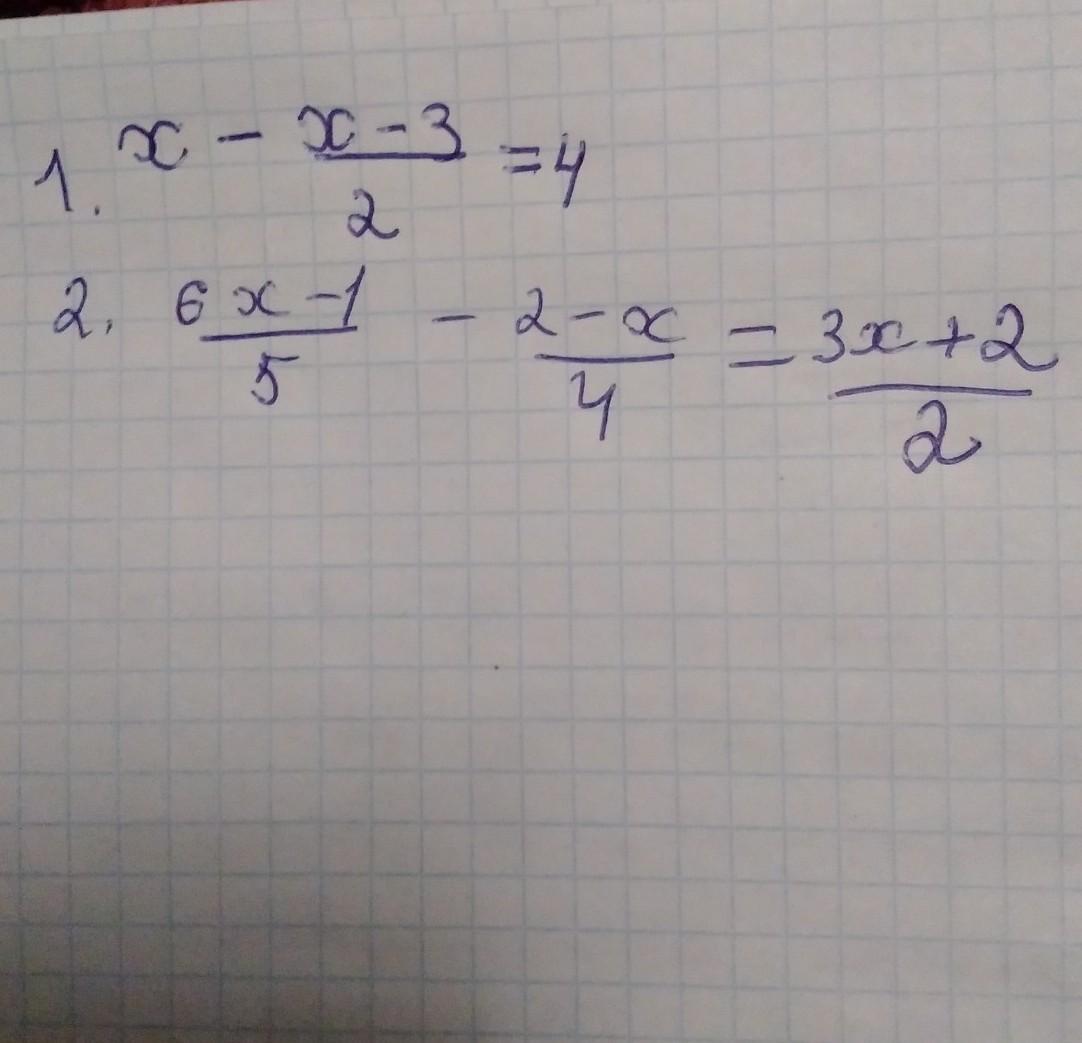 1. x - \frac{x-3}{2} = 4
2. \frac{6x-1}{5} - \frac{2-x}{4} = \frac{3x+2}{2}